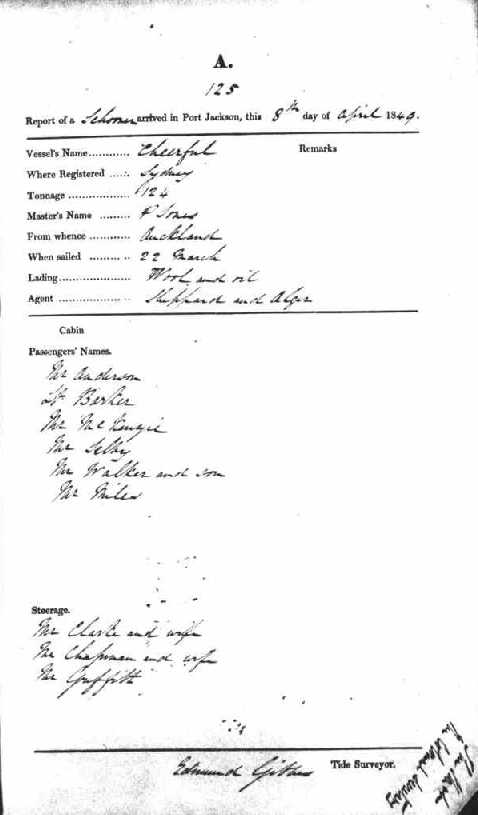 A.
125
Report of a Schooner arrived in Port Jackson, this 8th day of April 1849.
Vessel's Name............ Cheerful Remarks
Where Registered ..... Sydney
Tonnage .................. 124
Master's Name ......... P Jones
From whence ............ Auckland
When sailed ............ 22 March
Lading...................... Wool and oil
Agent ..................... Sheppard and Alger
Cabin
Passengers' Names.
Mr Anderson
Dr Barker
Mr McKenzie
Mr Selby
Mr Walker and son
Mr Miles
Steerage.
Mr Clarke and wife
Mr Chapman and wife
Mr Griffith
Edmund Tide Surveyor.